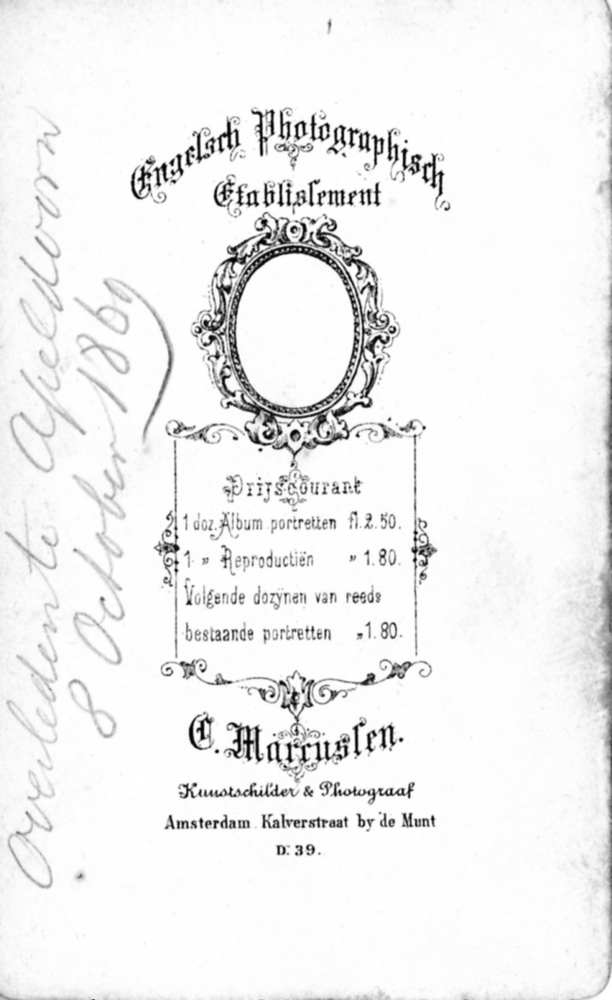 Engelsch Photographisch
Etablissement
Prijscourant
1 doz. Album portretten fl. 2.50.
1 " Reproductiën " 1.80.
Volgende dozynen van reeds
bestaande portretten „ 1.80.
C. Marcussen.
Kunstschilder & Photograaf
Amsterdam Kalverstraat by de Munt
D: 39.
Overleden te Apeldoorn
8 October 1869